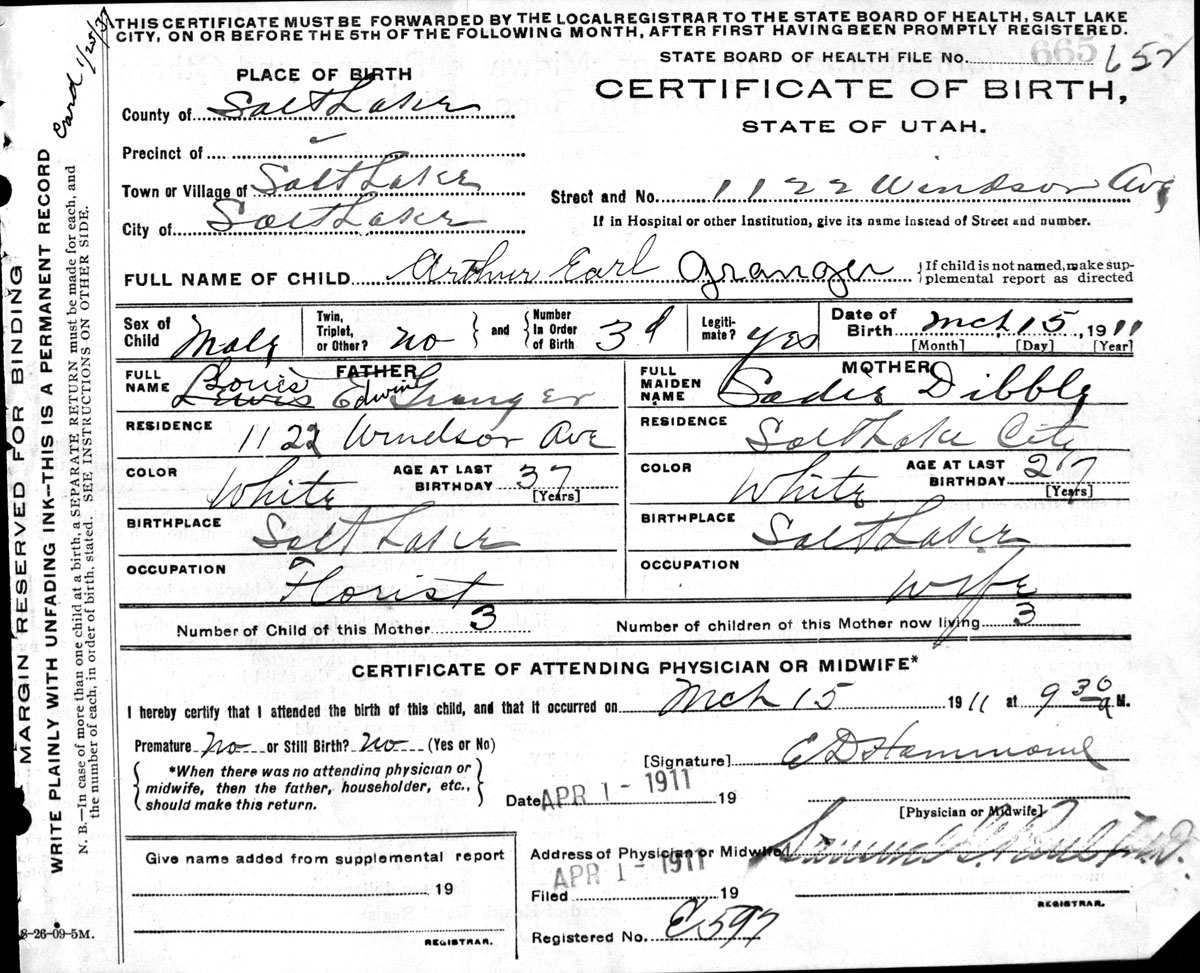 THIS CERTIFICATE MUST BE FORWARDED BY THE LOCAL REGISTRAR TO THE STATE BOARD OF HEALTH, SALT LAKE
CITY, ON OR BEFORE THE 5TH OF THE FOLLOWING MONTH, AFTER FIRST HAVING BEEN PROMPTLY REGISTERED.
Card 1/20/37
MARGIN RESERVED FOR BINDING
WRITE PLAINLY WITH UNFADING INK—THIS IS A PERMANENT RECORD
N. B.—In case of more than one child at a birth, a SEPARATE RETURN must be made for each, and
the number of each, in order of birth, stated. SEE INSTRUCTIONS ON OTHER SIDE.
STATE BOARD OF HEALTH FILE No. 665 652
CERTIFICATE OF BIRTH,
STATE OF UTAH.
PLACE OF BIRTH
County of Salt Lake
Precinct of
Town or Village of Salt Lake
City of Salt Lake
Street and No. 1122 Windsor Ave
If in Hospital or other Institution, give its name instead of Street and number.
FULL NAME OF CHILD Arthur Earl Granger { If child is not named, make sup-
plemental report as directed
Sex of Child Male
Twin, Triplet, or Other? no } and { Number In Order of Birth 3d
Legiti-mate? yes
Date of Birth Mch 15, 1911
[Month] [Day] [Year]
FATHER
FULL NAME Louis Lewis Edwin Granger
RESIDENCE 1122 Windsor Ave
COLOR White AGE AT LAST BIRTHDAY 37 [Years]
BIRTHPLACE Salt Lake
OCCUPATION Florist
MOTHER
FULL MAIDEN NAME Sadie Dibble
RESIDENCE Salt Lake City
COLOR White AGE AT LAST BIRTHDAY 27 [Years]
BIRTHPLACE Salt Lake
OCCUPATION Wife
Number of Child of this Mother 3 Number of children of this Mother now living 3
CERTIFICATE OF ATTENDING PHYSICIAN OR MIDWIFE*
I hereby certify that I attended the birth of this child, and that it occurred on Mch 15 1911 at 9 30 a M.
Premature no or Still Birth? no (Yes or No)
{ *When there was no attending physician or
midwife, then the father, householder, etc.,
should make this return. }
[Signature] E D Hammond
Date APR 1 - 1911 19
[Physician or Midwife]
Address of Physician or Midwife
Give name added from supplemental report
19
REGISTRAR.
Filed APR 1 - 1911 19
REGISTRAR.
Registered No. E 597
8-26-09-5M.